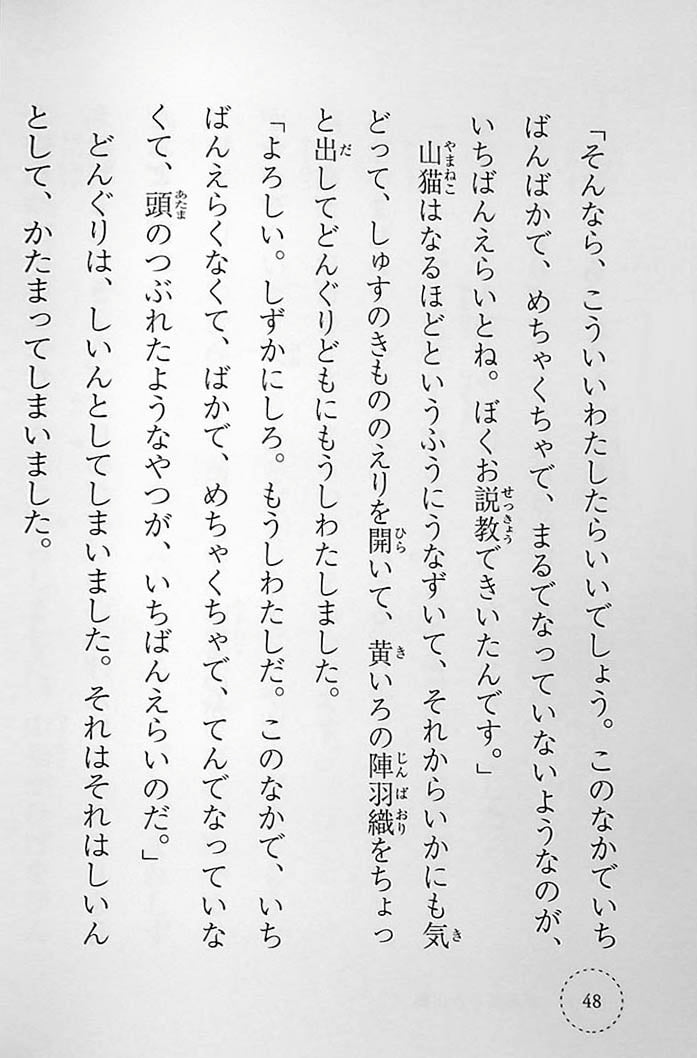 「そんなら、こういいわたしたらいいでしょう。このなかでいち
ばんばかで、めちゃくちゃで、まるでなっていないようなのが、
いちばんえらいとね。ぼくお説教できいたんです。」
山猫はなるほどというふうにうなずいて、それからいかにも気
どって、しゅすのきもののえりを開いて、黄いろの陣羽織をちょっ
と出してどんぐりどもにもうしわたしました。
「よろしい。しずかにしろ。もうしわたしだ。このなかで、いち
ばんえらくなくて、ばかで、めちゃくちゃで、てんでなっていな
くて、頭のつぶれたようなやつが、いちばんえらいのだ。」
どんぐりは、しいんとしてしまいました。それはそれはしいん
として、かたまってしまいました。
48